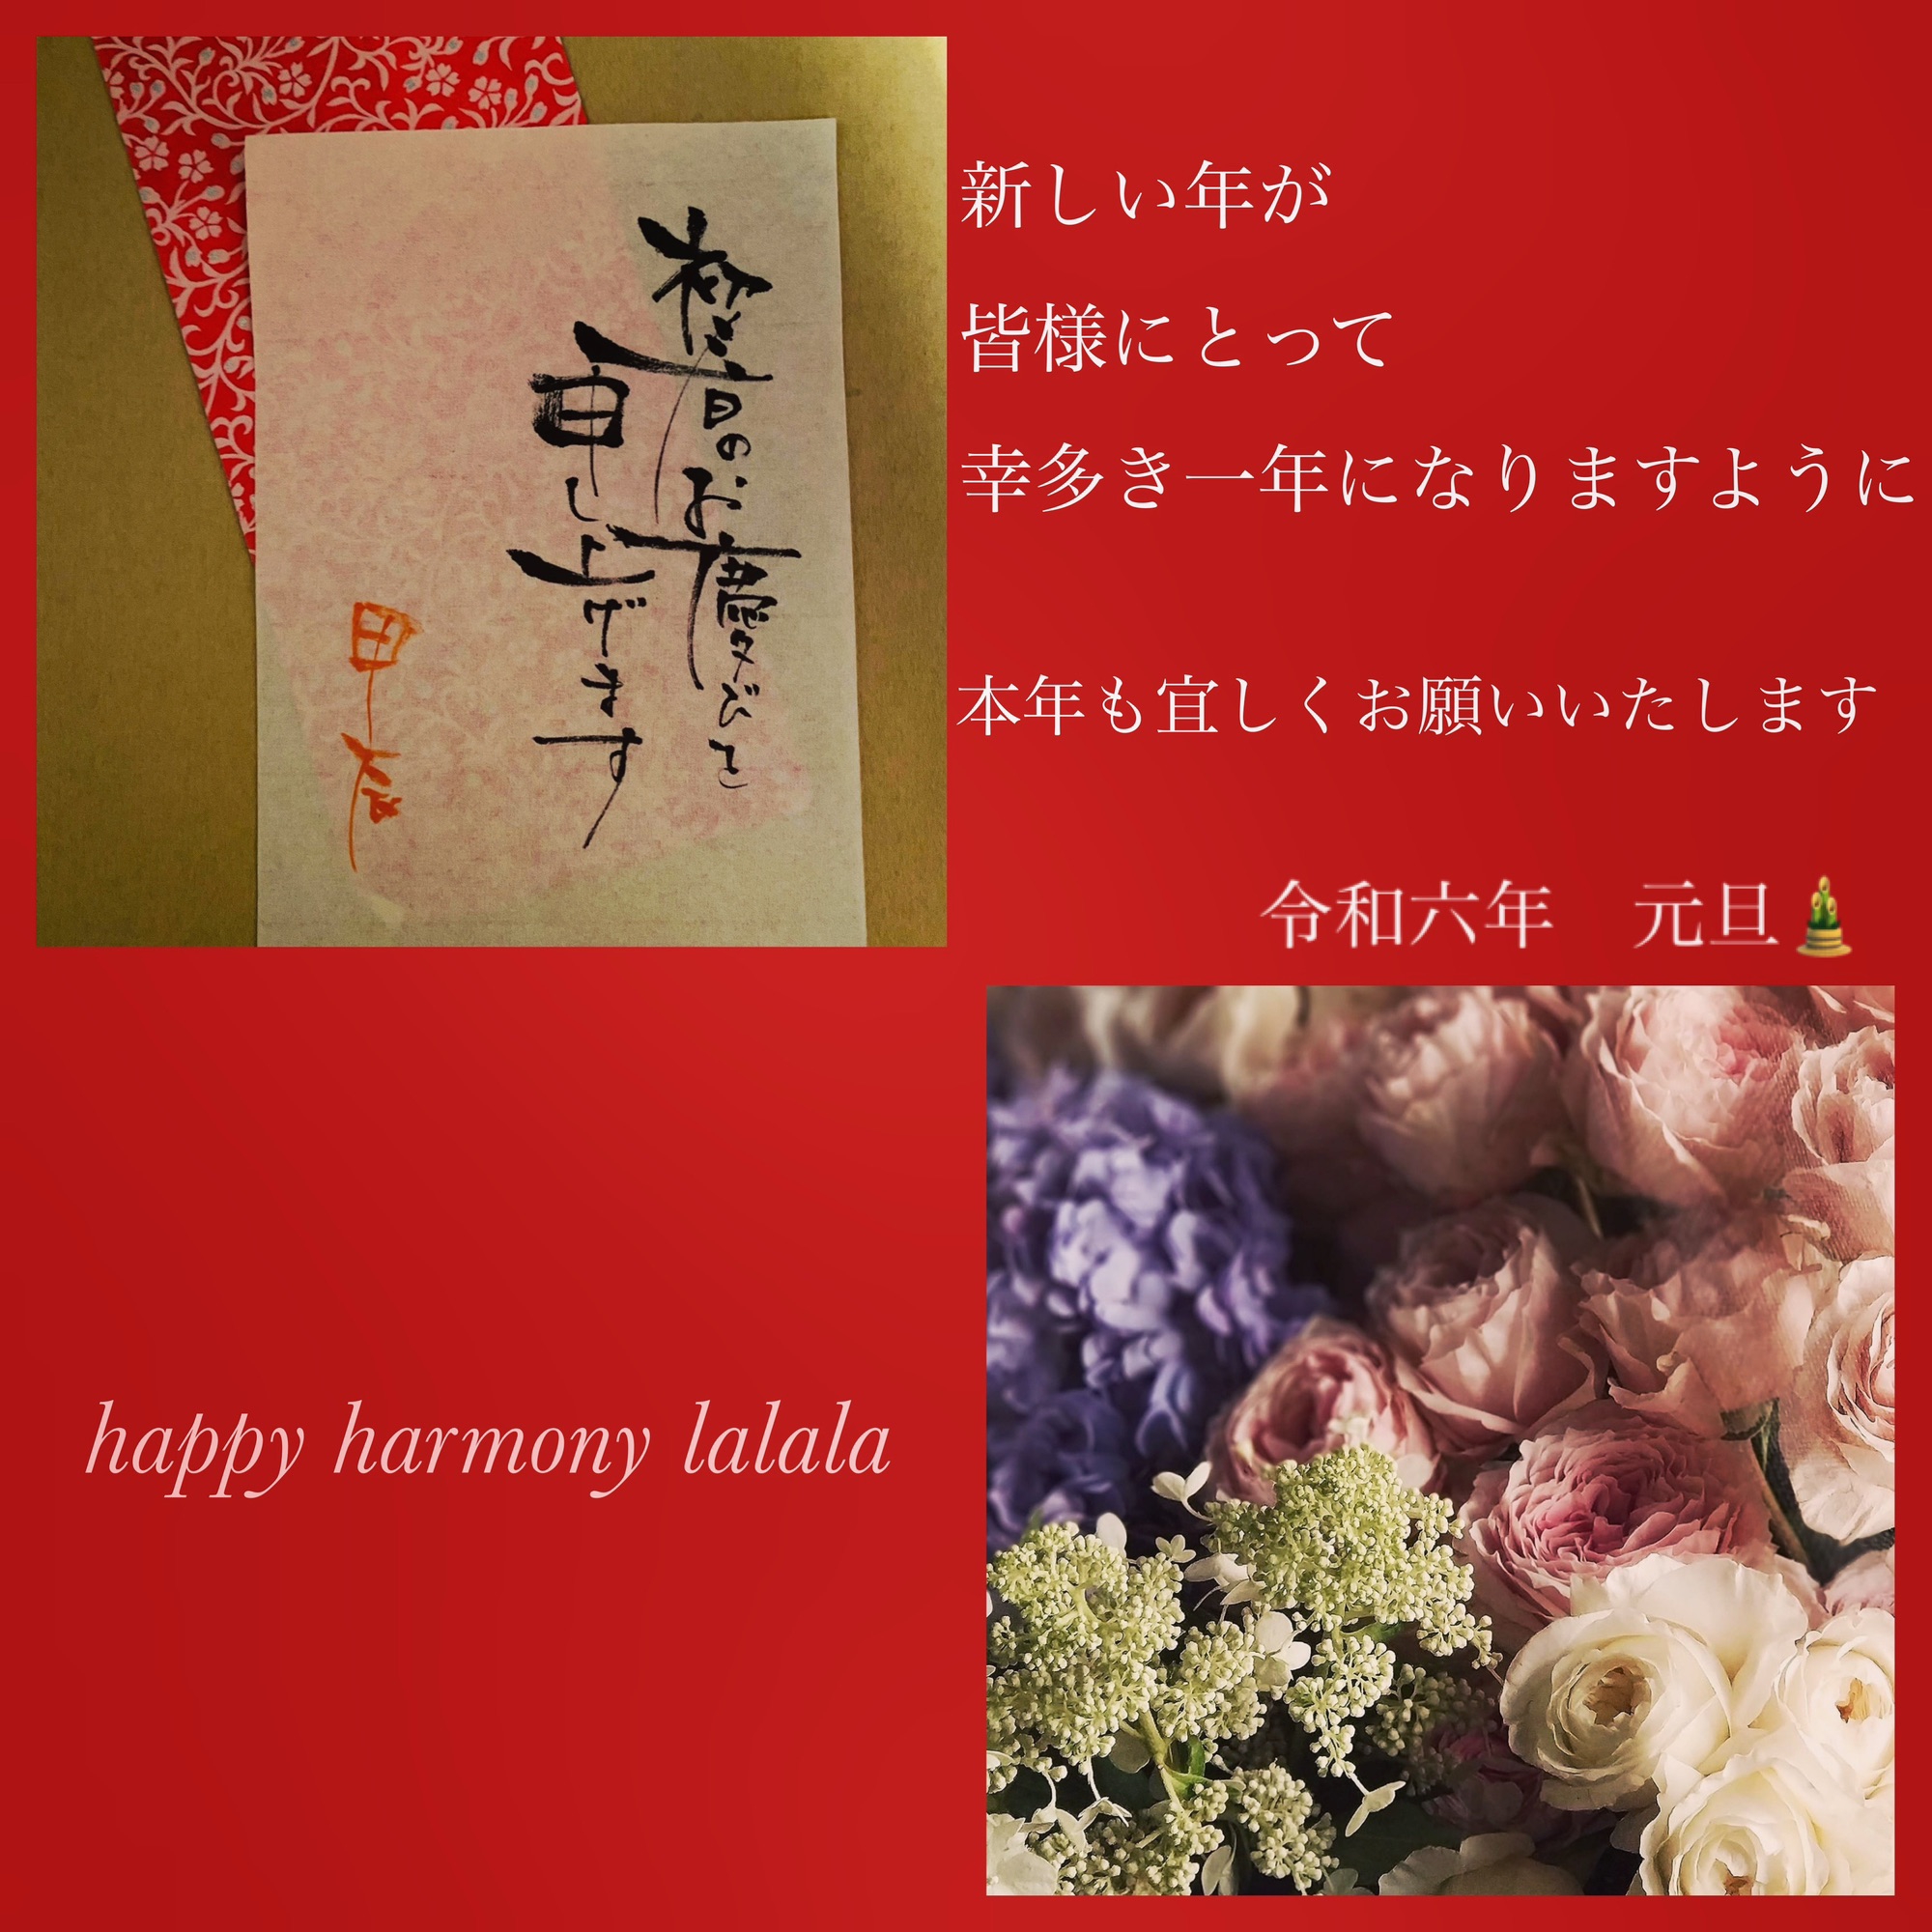 初春のお慶びを
申し上げます
甲辰
新しい年が
皆様にとって
幸多き一年になりますように
本年も宜しくお願いいたします
令和六年　元旦🎍
happy harmony lalala